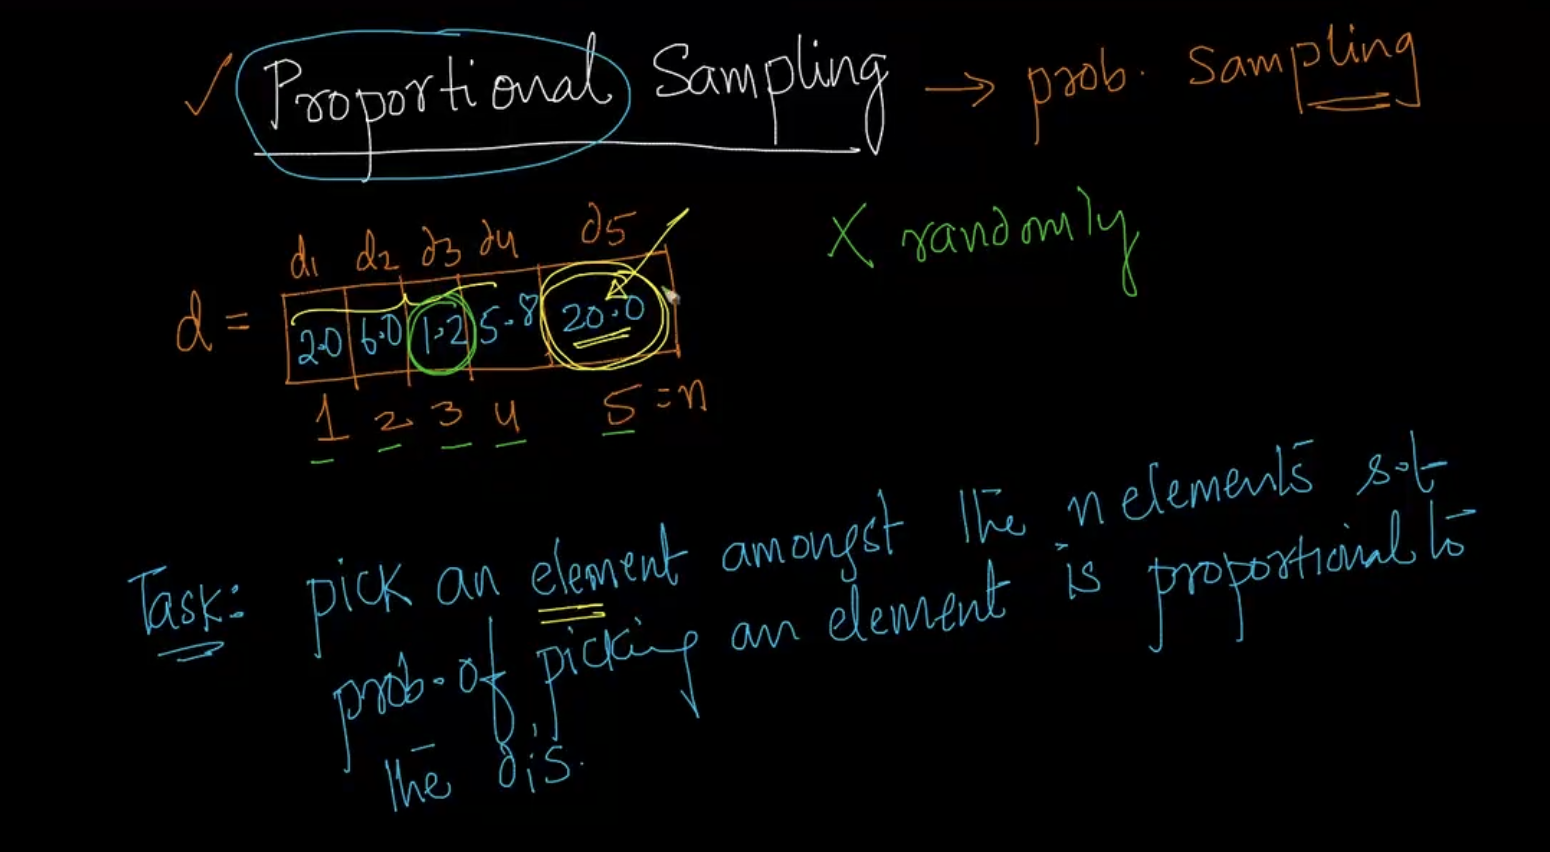 ✓ Proportional Sampling → prob. Sampling
X randomly
d1 d2 d3 d4 d5
d = 2.0 6.0 1.2 5.8 20.0
1 2 3 4 5 = n
Task: pick an element amongst the n elements s.t
prob. of picking an element is proportional to
the di's.